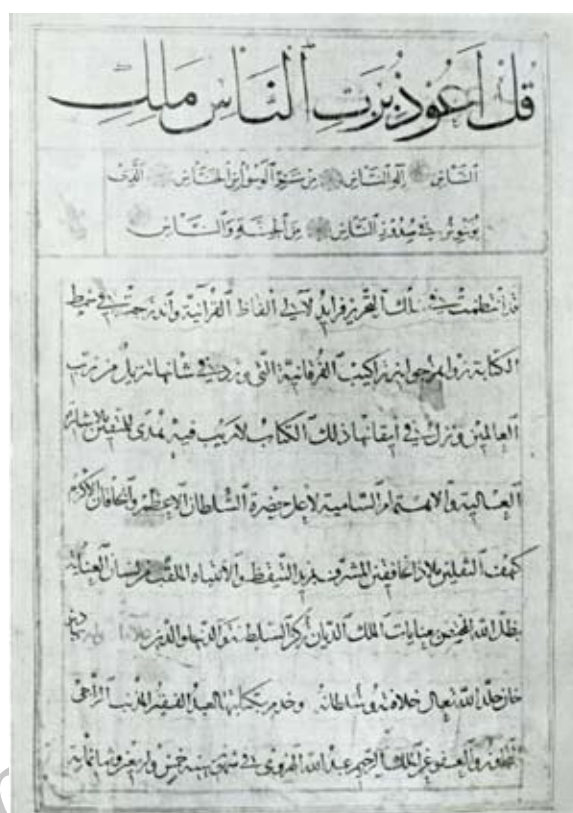 قُل أَعُوذُ بِرَبِّ ٱلنَّاسِ مَلِكِ
ٱلنَّاسِ إِلَهِ ٱلنَّاسِ مِن شَرِّ ٱلوَسْوَاسِ ٱلخَنَّاسِ ٱلَّذِى
يُوَسْوِسُ فِى صُدُورِ ٱلنَّاسِ مِنَ ٱلجِنَّةِ وَٱلنَّاسِ
قد انتظمت فى سلك التحرير فرايد لآلى الفاظ القرآنية واندرجت فى خيط
الكتابة زواهر جواهر تراكيب الفرقانية التى ورد فى شانها تنزيل من رب
العالمين ونزل فى ايقانها ذلك الكتاب لا ريب فيه هدى للمتقين بالاشارة
العالية والاهتمام السامية لاعلى حضرة السلطان الاعظم والخاقان الاكرم
كهف الثقلين ملاذ الخافقين المشرف بمزيد التيقظ والانتباه الملقب من لسان العناية
بظل الله المختص بعنايات الملك الديان ركن السلطنة والدنيا والدين علاء
خان خلد الله تعالى خلافته وسلطانه وخدم بكتابتها العبد الفقير المذنب الراجى
والعفو عن الملك الرحيم عبد الله الهروى فى سنة خمس واربعين وثمانمائة